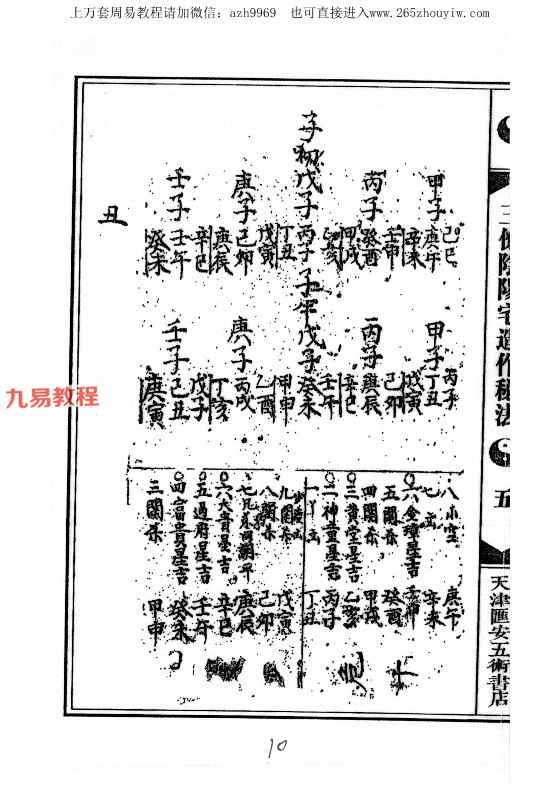 上万套周易教程请加微信：azh9969　也可直接进入www.265zhouyiw.com
五
天津匯安五術書店
甲子
己巳
庚午
辛未
丙子
壬申
癸酉
甲戌
戊子
丙子
丁丑
庚子
戊寅
己卯
庚辰
壬子
辛巳
壬午
癸未
丑
甲子
丙子
丁丑
戊寅
丙子
己卯
庚辰
辛巳
戊子
壬午
癸未
庚子
甲申
乙酉
丙戌
丁亥
壬子
戊子
己丑
庚寅
八小空 庚午
辛未
五關杀 癸酉
四關杀 甲戌
三貴堂星吉 乙亥
二神童星吉 丙子
丁丑
九關杀 戊寅
八關杀 己卯
庚辰
六大貴星吉 辛巳
五過府星吉 壬午
四富貴星吉 癸未
三關杀 甲申
九易教程
10